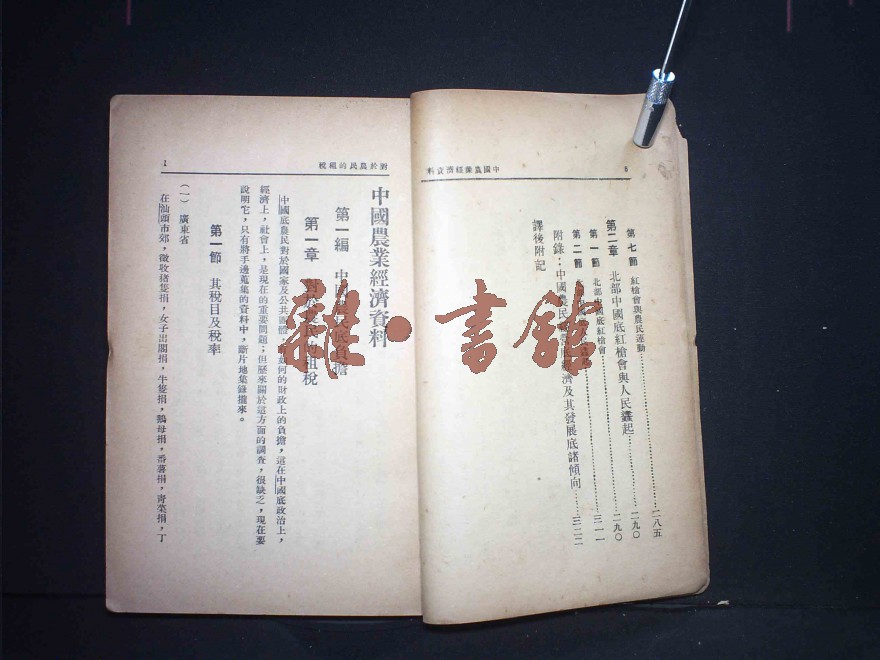 中國農業經濟資料
8
第七節 紅槍會與農民運動……二八五
第二章 北部中國底紅槍會與人民蠭起……二九〇
第一節 北部中國底紅槍會……二九〇
第二節……三一一
附錄：中國農民經濟及其發展底諸傾向……三二二
譯後附記
對於農民的租稅
1
中國農業經濟資料
第一編 中國農民底負擔
第一章 對於農民的租稅
中國底農民對於國家及公共團體 如何的財政上的負擔，這在中國底政治上，
經濟上，社會上，是現在的重要問題；但歷來關於這方面的調查，很缺乏，現在要
說明它，只有將手邊蒐集的資料中，斷片地集錄攏來。
第一節 其稅目及稅率
（一） 廣東省
在汕頭市郊，徵收猪隻捐，女子出閣捐，牛隻捐，鵝母捐，番薯捐，靑菜捐，丁
雜·書館